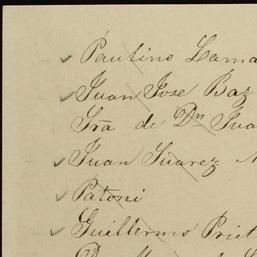 Paulino Lama
Juan Jose Baz
Sra de Dn Jua
Juan Suarez
Patoni
Guillermo Priet